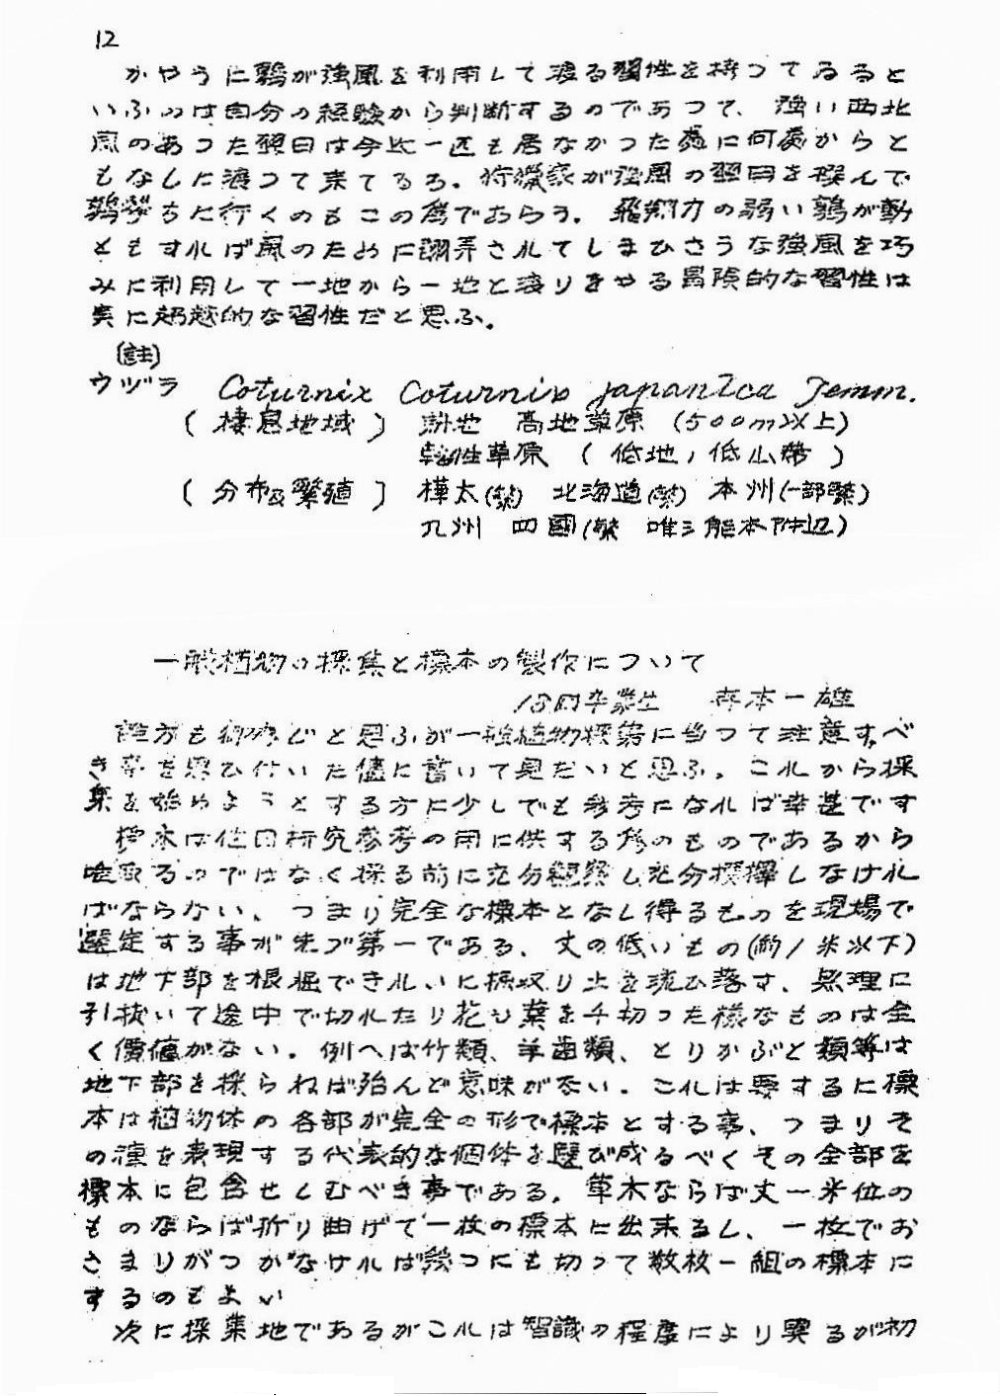 12
かやうに鶉が強風を利用して渡る習性を持つてゐると
いふのは自分の経験から判断するのであつて、強い西北
風のあつた翌日は今迄一匹も居なかつた処に何処からと
もなしに渡つて来てゐる。狩猟家が強風の翌日を撰んで
鶉撃ちに行くのもこの為であらう。飛翔力の弱い鶉が動
ともすれば風のために翻弄されてしまひさうな強風を巧
みに利用して一地から一地と渡りをやる冒険的な習性は
実に超越的な習性だと思ふ。
(註)
ウヅラ Coturnix Coturnix japanica Temm.
(棲息地域) 耕地 高地草原 (500m以上)
乾性草原 (低地,低山帯)
(分布及繁殖) 樺太(繁) 北海道(繁) 本州(一部繁)
九州 四國(繁 唯三熊本附辺)
一般植物の採集と標本の製作について
18回卒業生 森本一雄
誰方も御存じと思ふが一般植物採集に当つて注意すべ
き事を思ひ付いた儘に書いて見たいと思ふ。これから採
集を始めようとする方に少しでも参考になれば幸甚です
標本は他日研究参考の用に供する為のものであるから
唯取るのではなく採る前に充分観察し充分撰擇しなけれ
ばならない、つまり完全な標本となし得るものを現場で
選定する事が先づ第一である、丈の低いもの(約1米以下)
は地下部を根堀できれいに掘取り土を洗ひ落す、無理に
引抜いて途中で切れたり花や葉を千切つた様なものは全
く價値がない。例へば竹類、羊歯類、とりかぶと類等は
地下部を採らねば殆んど意味がない。これは要するに標
本は植物体の各部が完全の形で標本とする事、つまりそ
の種を表現する代表的な個体を選び成るべくその全部を
標本に包含せしむべき事である。草木ならば丈一米位の
ものならば折り曲げて一枚の標本に出来るし、一枚でお
さまりがつかなければ幾つにも切つて数枚一組の標本に
するのもよい
次に採集地であるがこれは智識の程度により異るが初